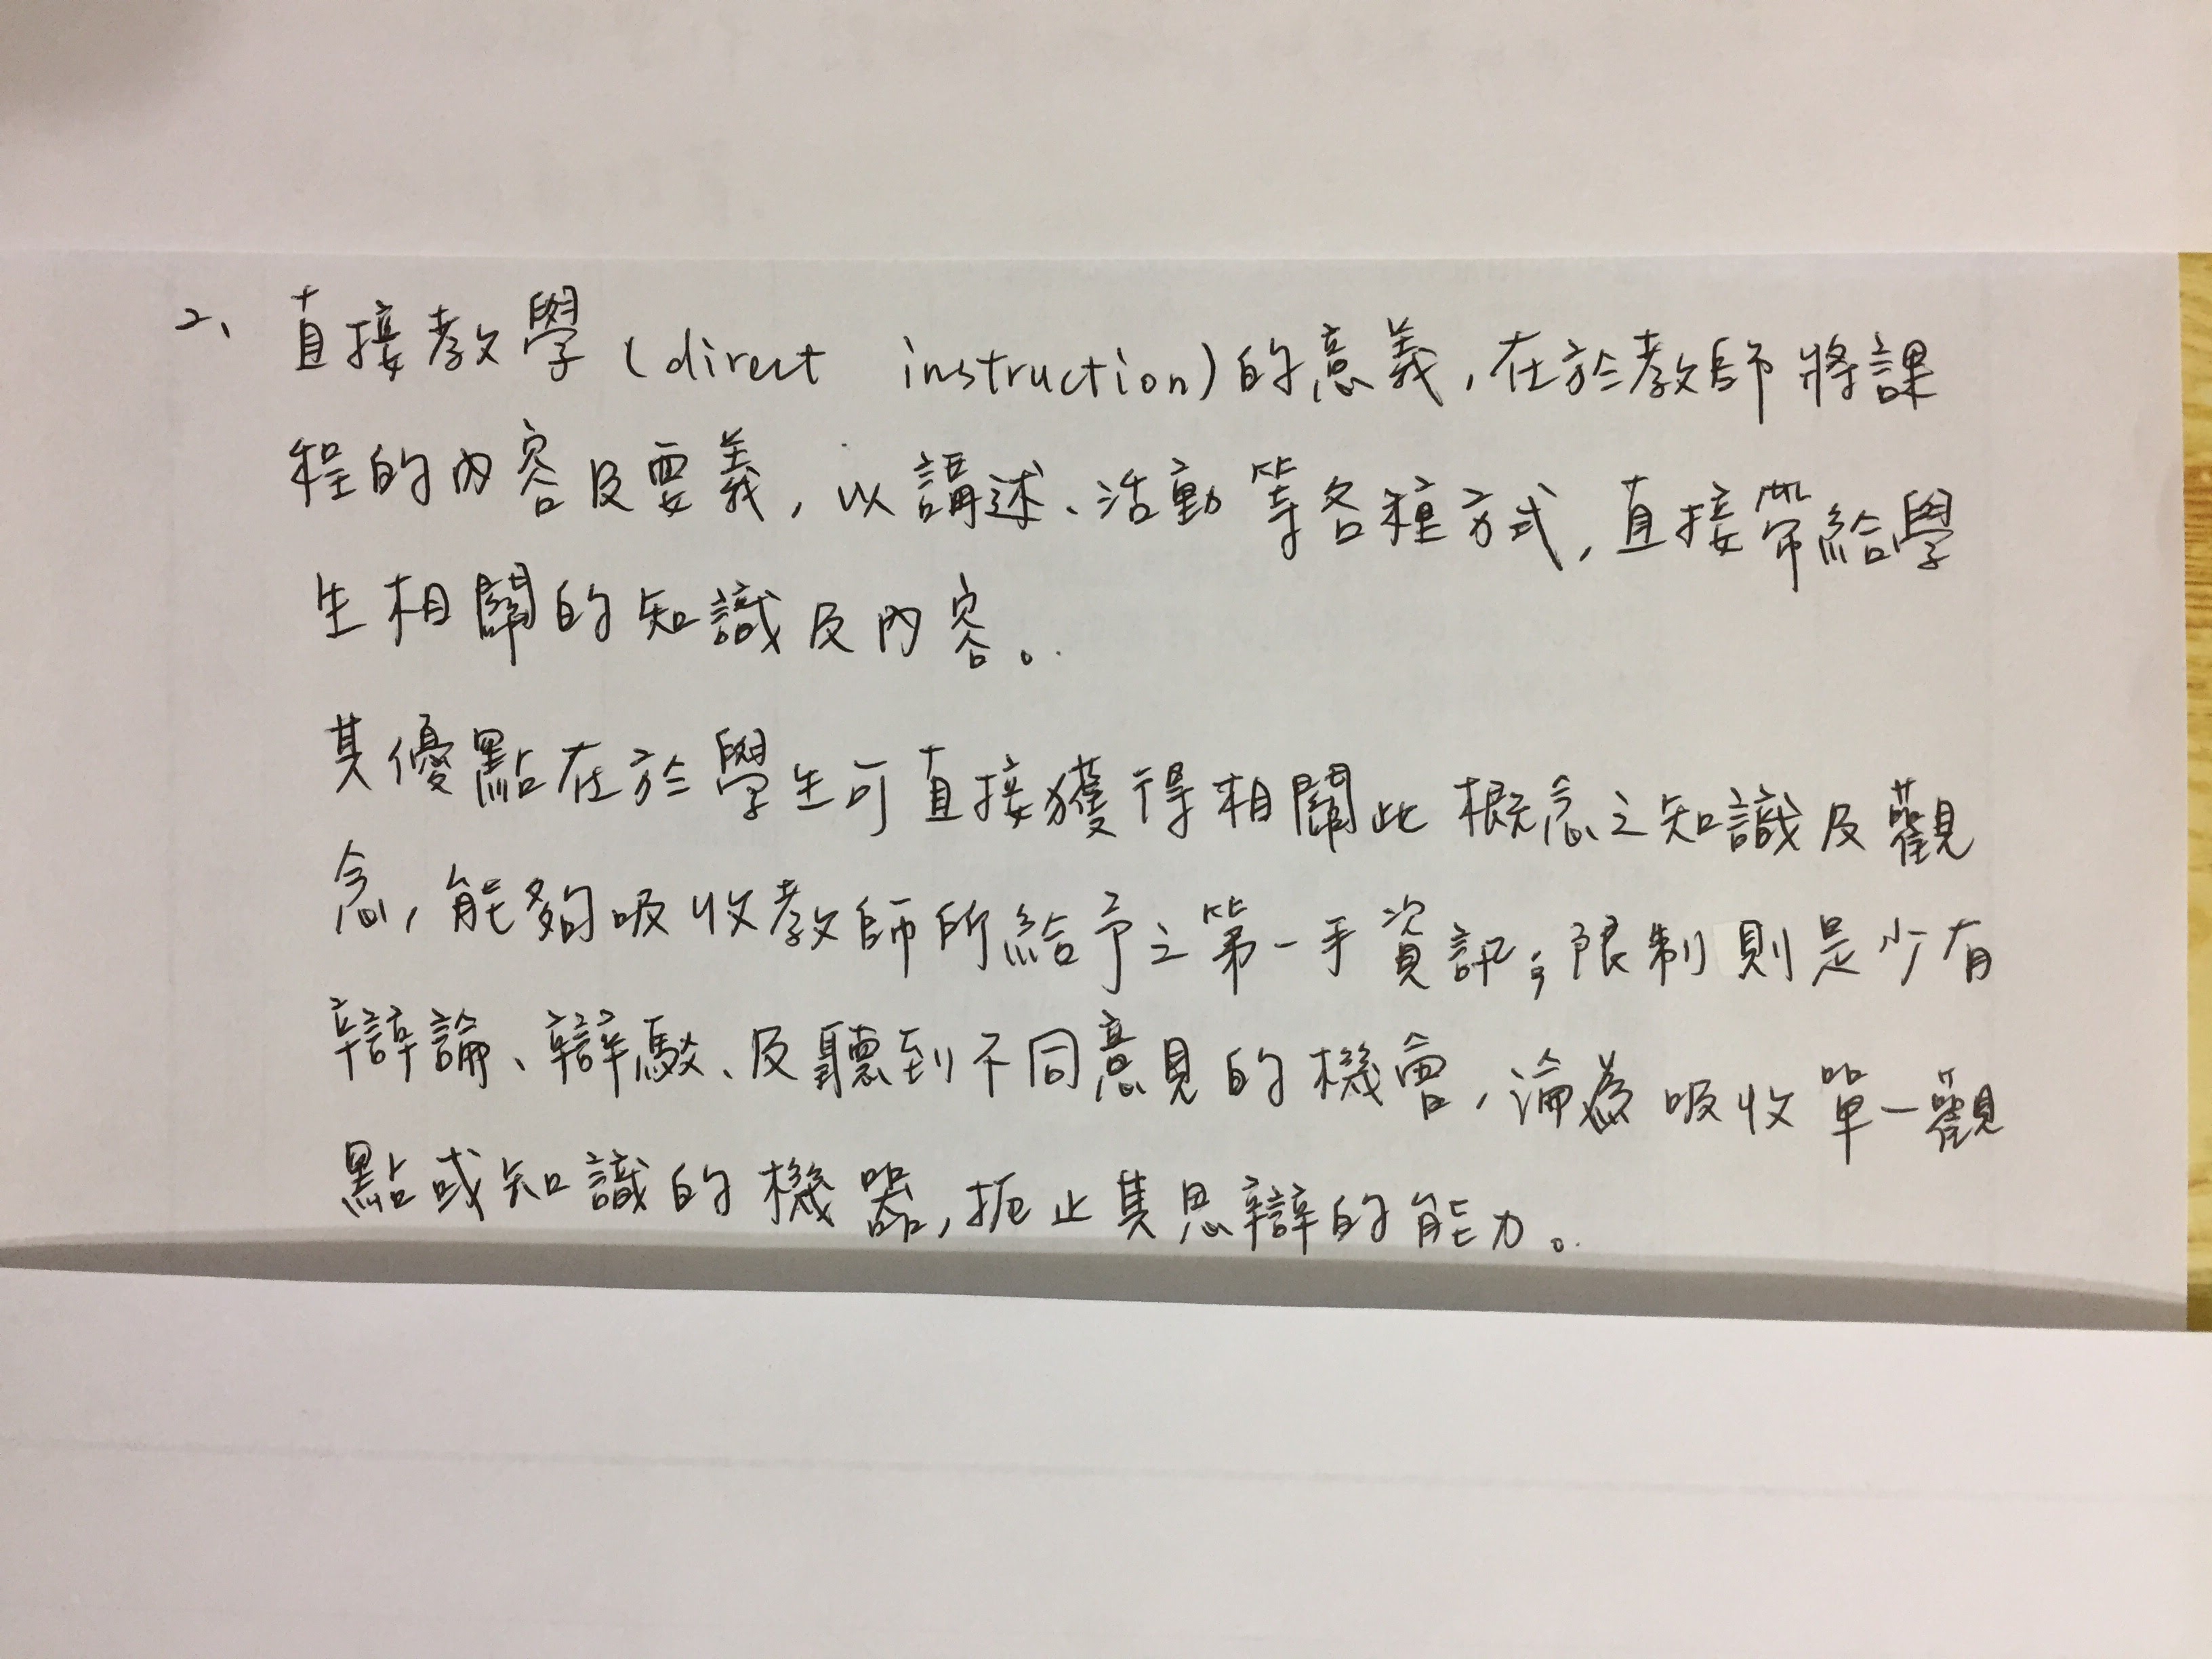 2、直接教學(direct instruction)的意義,在於教師將課
程的內容及要義,以講述、活動等各種方式,直接帶給學
生相關的知識及內容。
其優點在於學生可直接獲得相關此概念之知識及觀
念,能夠吸收教師所給予之第一手資訊;限制則是少有
辯論、辯駁、及聽到不同意見的機會,淪為吸收單一觀
點或知識的機器,扼止其思辯的能力。